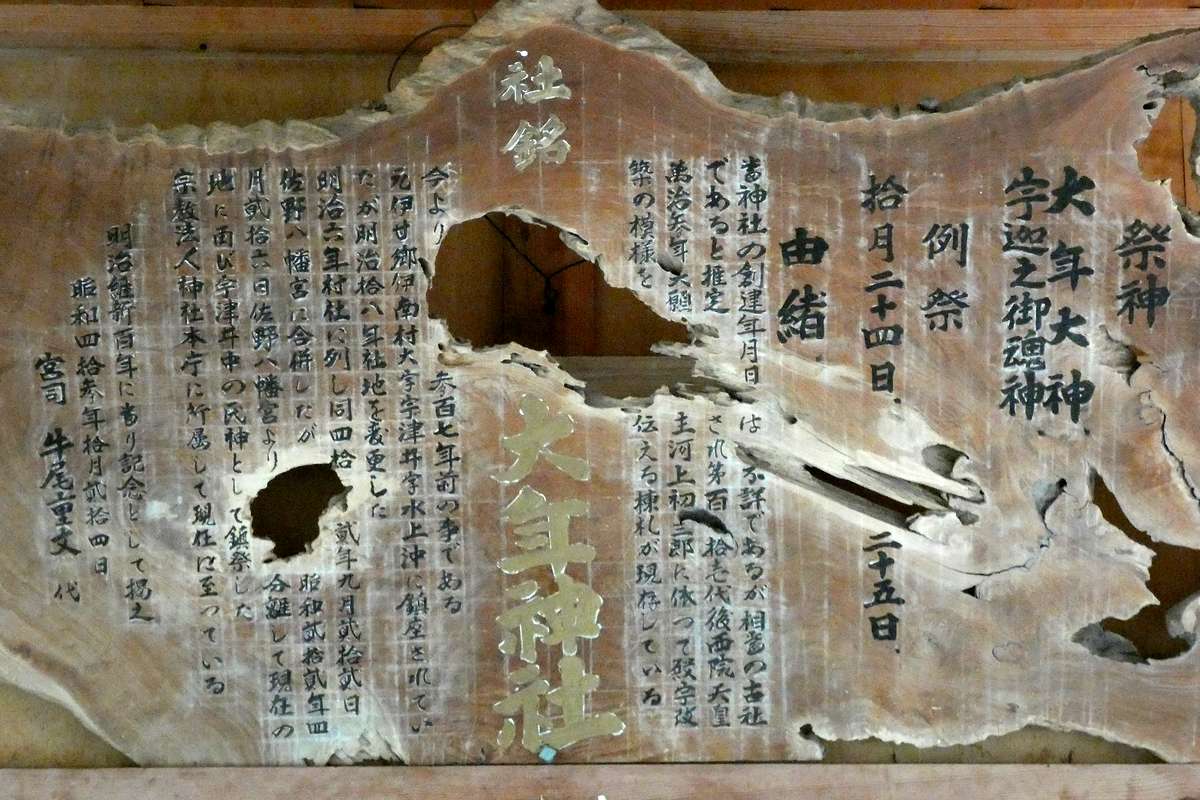 祭神
大年大神
宇迦之御魂神
例祭
拾月二十四日、二十五日、
由緒
当神社の創建年月日は不詳であるが相当の古社
であると推定され第百拾壱代後西院天皇
萬治癸年大願主河上初三郎に依って殿宇改
築の模様を伝える棟札が現存している
社銘
大年神社
今より参百七年前の事である
元伊甘郷伊南村大字宇津井字水上沖に鎮座されてい
たが明治拾八年社地を変更した
明治六年村社に列し同四拾弐年九月弐拾弐日
佐野八幡宮に合併したが昭和弐拾弐年四
月弐拾六日佐野八幡宮より分離して現在の
地に面び宇津井中の氏神として鎮祭した
宗教法人神社本庁に所属して現在に至っている
明治維新百年に当り記念として掲之
昭和四拾参年拾月弐拾四日
宮司 牛尾重文 代